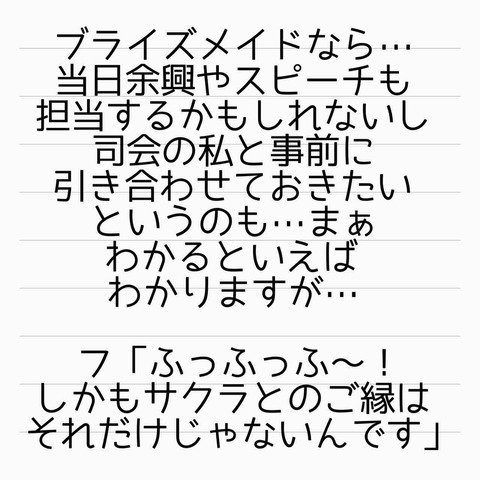 ブライズメイドなら…
当日余興やスピーチも
担当するかもしれないし
司会の私と事前に
引き合わせておきたい
というのも…まぁ
わかるといえば
わかりますが…
フ「ふっふっふ〜！
しかもサクラとのご縁は
それだけじゃないんです」